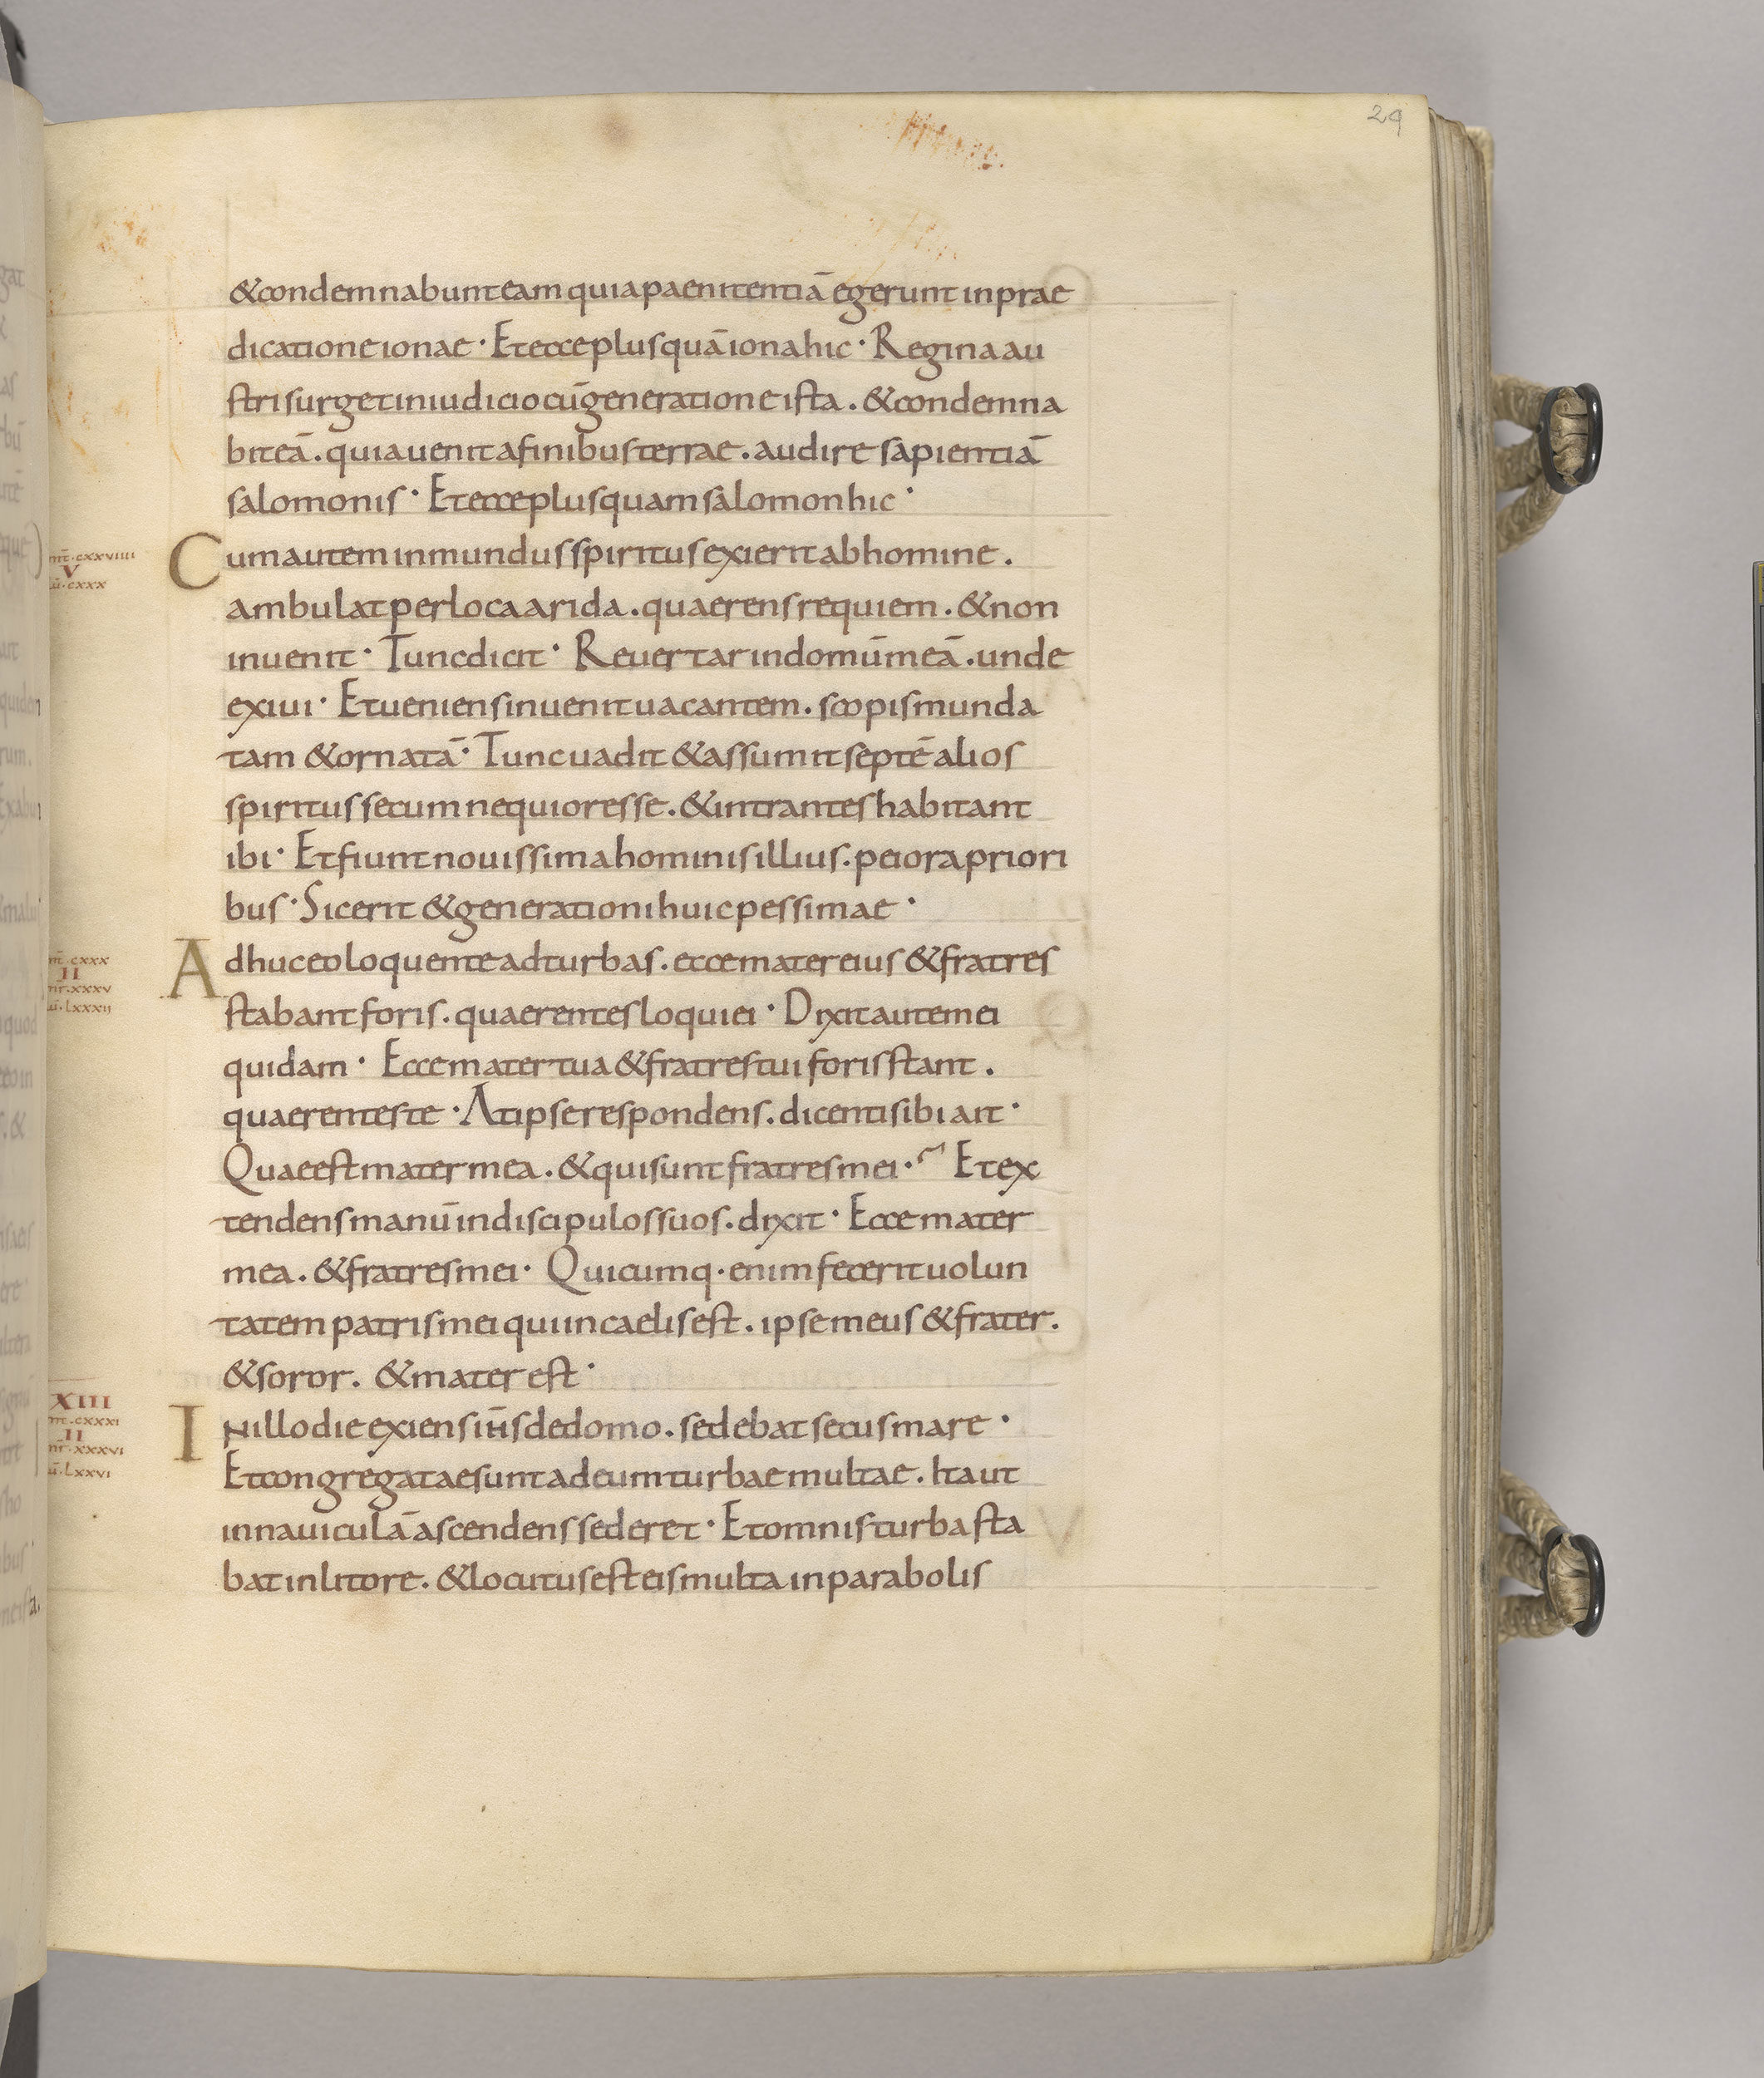 29
&condemnabunt eam quia paenitentiā egerunt in prae
dicatione ionae · Et ecce plus quā iona hic · Regina au
stri surget in iudicio cū generatione ista . &condemna
bit eā . quia uenit a finibus terrae . audire sapientiā
salomonis · Et ecce plus quam salomon hic ·
mt̄ · cxxviiii
V
lū · cxxx
Cum autem inmundus spiritus exierit ab homine .
ambulat per loca arida . quaerens requiem . & non
inuenit · Tunc dicit · Reuertar in domū meā . unde
exiui · Et ueniens inuenit uacantem . scopis munda
tam & ornatā · Tunc uadit & assumit septē alios
spiritus secum nequiores se . & intrantes habitant
ibi · Et fiunt nouissima hominis illius . peiora priori
bus · Sic erit & generationi huic pessimae ·
mt̄ · cxxx
II
mr̄ · xxxv
lū · Lxxxii
Adhuc eo loquente ad turbas . ecce mater eius & fratres
stabant foris . quaerentes loqui ei · Dixit autem ei
quidam · Ecce mater tua & fratres tui foris stant .
quaerentes te · At ipse respondens . dicenti sibi ait ·
Quae est mater mea . & qui sunt fratres mei · Et ex
tendens manū in discipulos suos . dixit · Ecce mater
mea . & fratres mei · Quicumq · enim fecerit uolun
tatem patris mei qui in caelis est . ipse meus & frater .
& soror . & mater est ·
XIII
mt̄ · cxxxi
II
mr̄ · xxxvi
lū · Lxxvi
In illo die exiens iħs de domo . sedebat secus mare ·
Et congregatae sunt ad eum turbae multae . Ita ut
in nauiculā ascendens sederet · Et omnis turba sta
bat in litore . & locutus est eis multa in parabolis